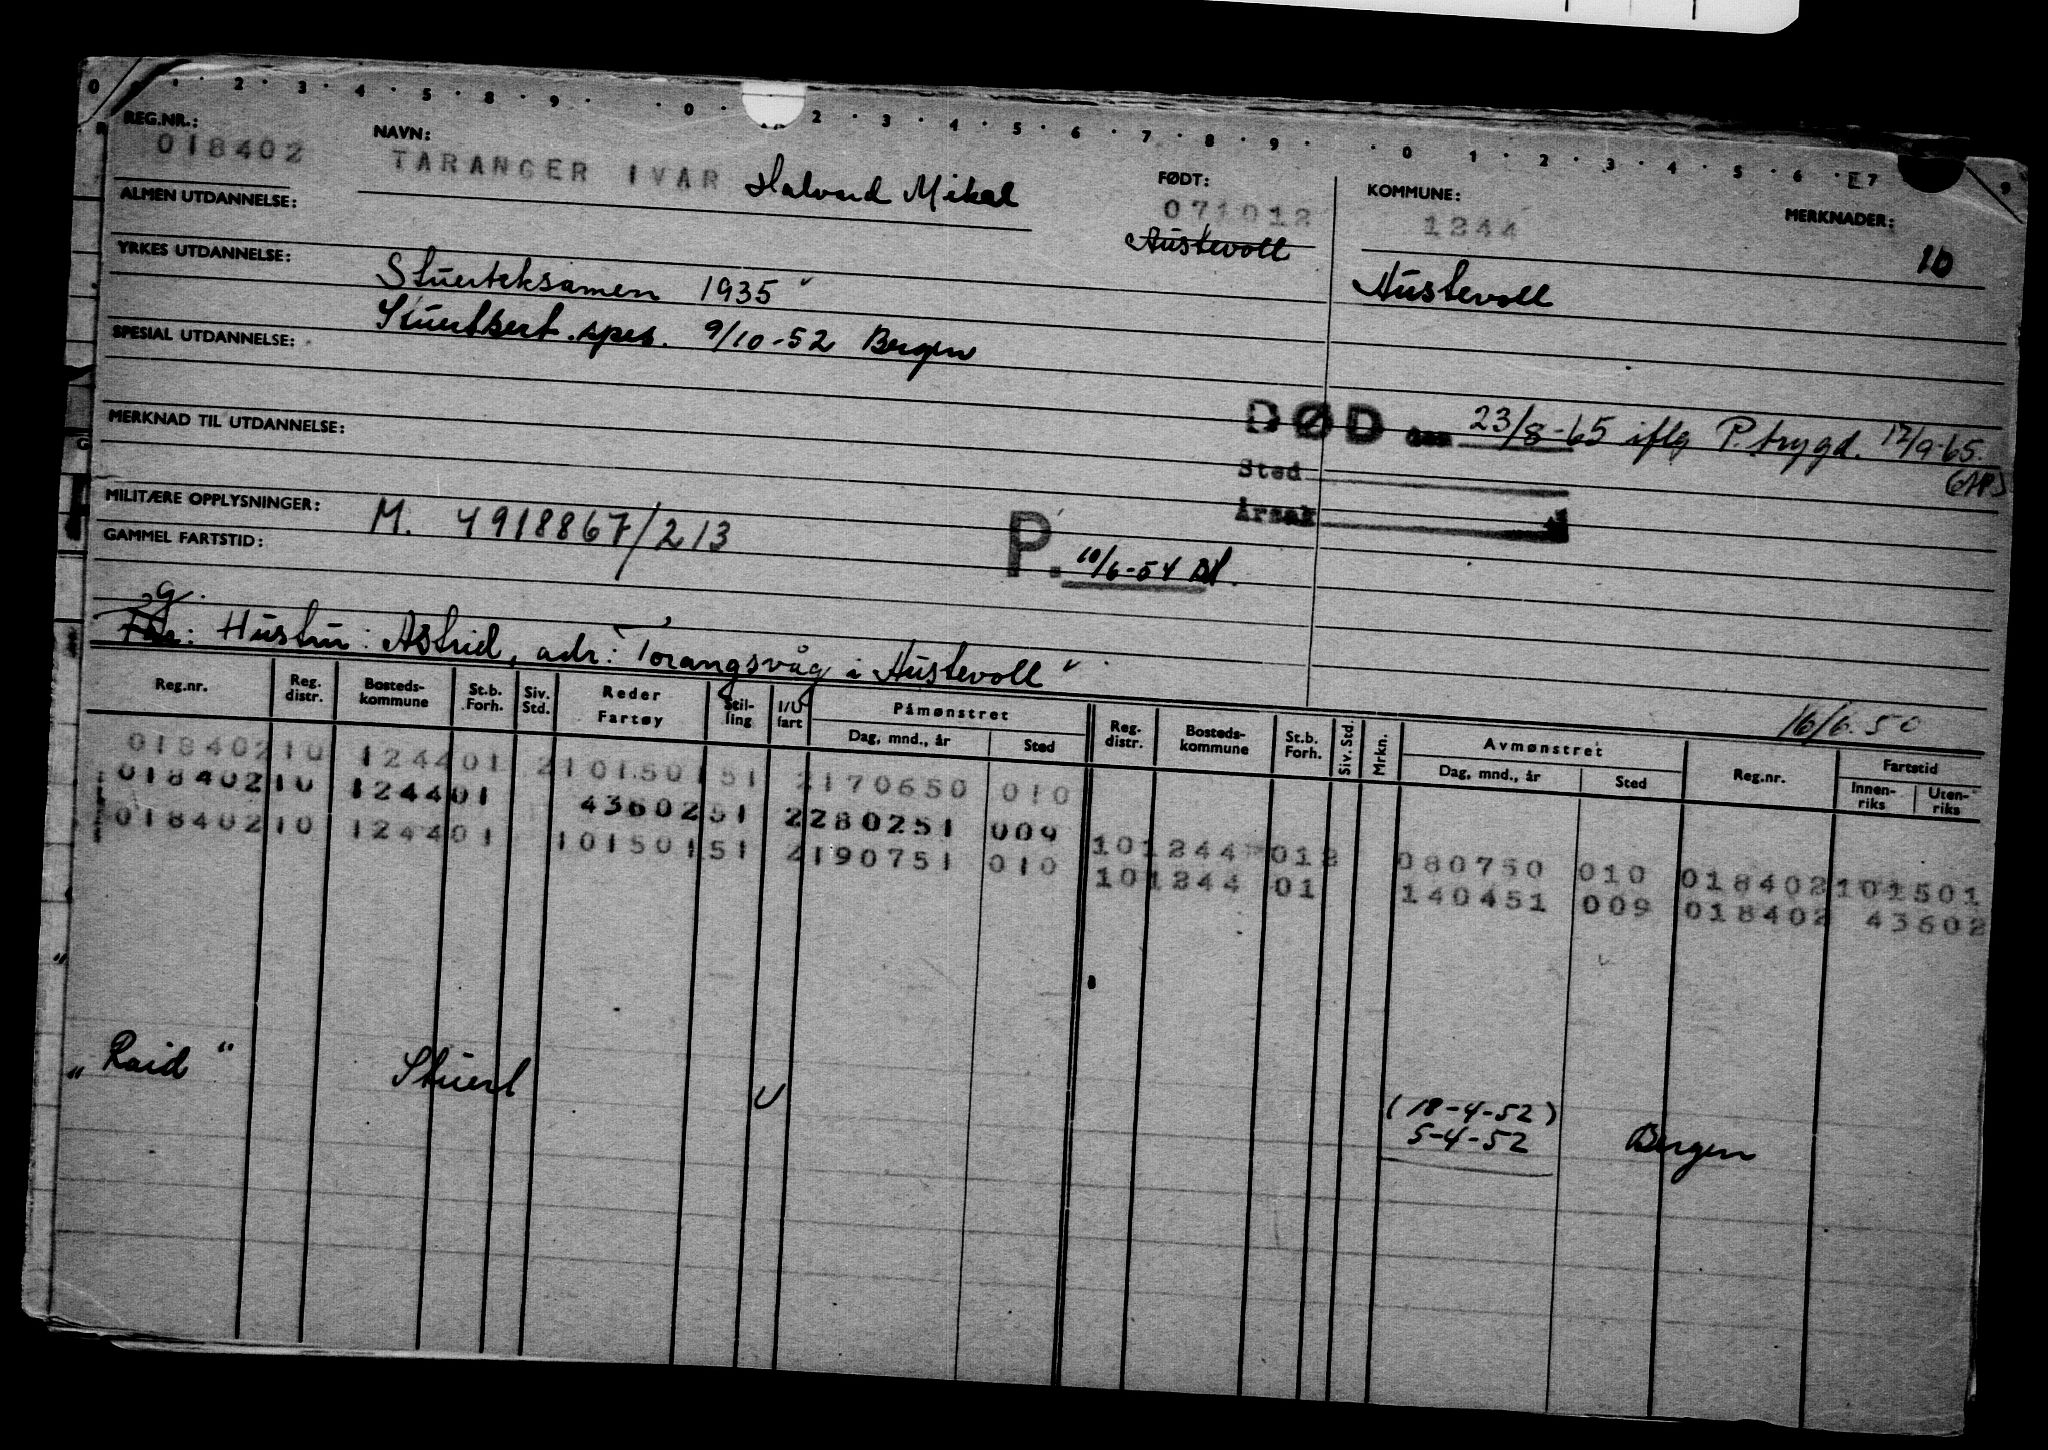 REG.NR.: 018402
NAVN: TARANGER IVAR Halvard Mikal
FØDT: 071012
Austevoll
KOMMUNE: 1244
Austevoll
MERKNADER: 10
ALMEN UTDANNELSE:
YRKES UTDANNELSE: Stuerteksamen 1935
Stuertsert. spes. 9/10-52 Bergen
SPESIAL UTDANNELSE:
MERKNAD TIL UTDANNELSE:
DØD den 23/8-65 iflg P.trygd. 17/9-65.
Sted
Årsak
MILITÆRE OPPLYSNINGER: M. 4918867/213
P. 10/6-54
GAMMEL FARTSTID:
g.
Far: Hustru: Astrid, adr: Torangsvåg i Austevoll
16/6.50
Reg.nr. Reg. distr. Bosteds-kommune St.b. Forh. Siv. Std. Reder Fartøy Stil-ling I/U fart Påmønstret Dag, mnd., år Sted Reg. distr. Bosteds-kommune St.b. Forh. Siv. Std. Mrkn. Avmønstret Dag, mnd., år Sted Reg.nr. Fartstid Innen-riks Uten-riks
018402 10 1244 01 2 101501 51 2 170650 010
018402 10 1244 01 43602 51 2 280251 009
018402 10 1244 01 101501 51 2 190751 010
10 1244 01 2 080750 010 018402 101501
10 1244 01 140451 009 018402 43602
„Raid“ Stuert U (18-4-52)
5-4-52 Bergen